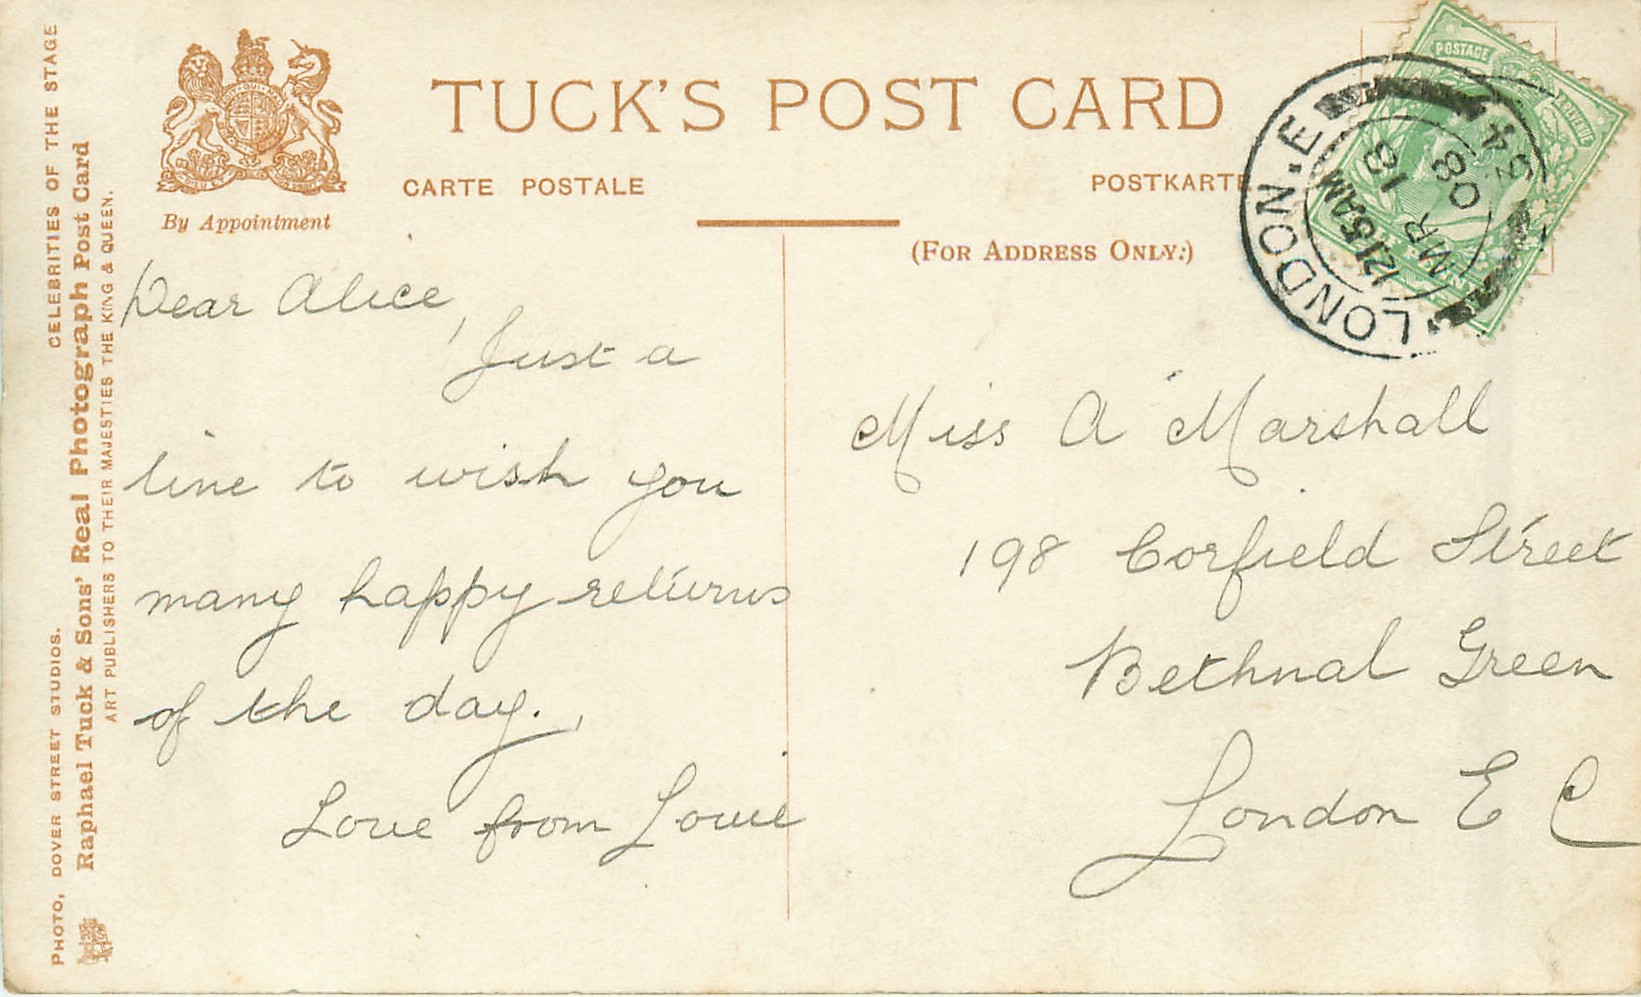 TUCK'S POST CARD
CARTE POSTALE
POSTKARTE
By Appointment
(FOR ADDRESS ONLY.)
CELEBRITIES OF THE STAGE
PHOTO, DOVER STREET STUDIOS.
Raphael Tuck & Sons' Real Photograph Post Card
ART PUBLISHERS TO THEIR MAJESTIES THE KING & QUEEN.
POSTAGE
REVENUE
LONDON.E
1215AM
MR 13
08
54
Dear Alice,
Just a
line to wish you
many happy returns
of the day.
Love from Louie
Miss A Marshall
198 Corfield Street
Bethnal Green
London E C